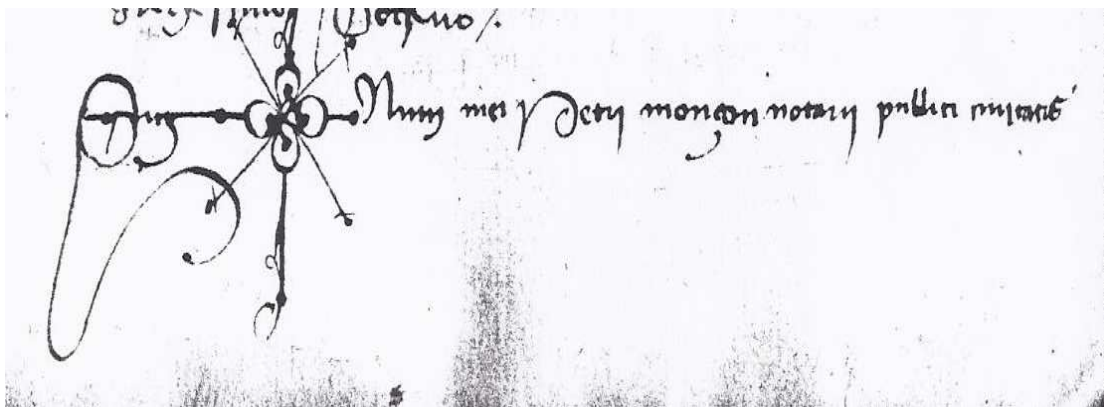 Sig num mei Petri monçon notarii publici civitatis